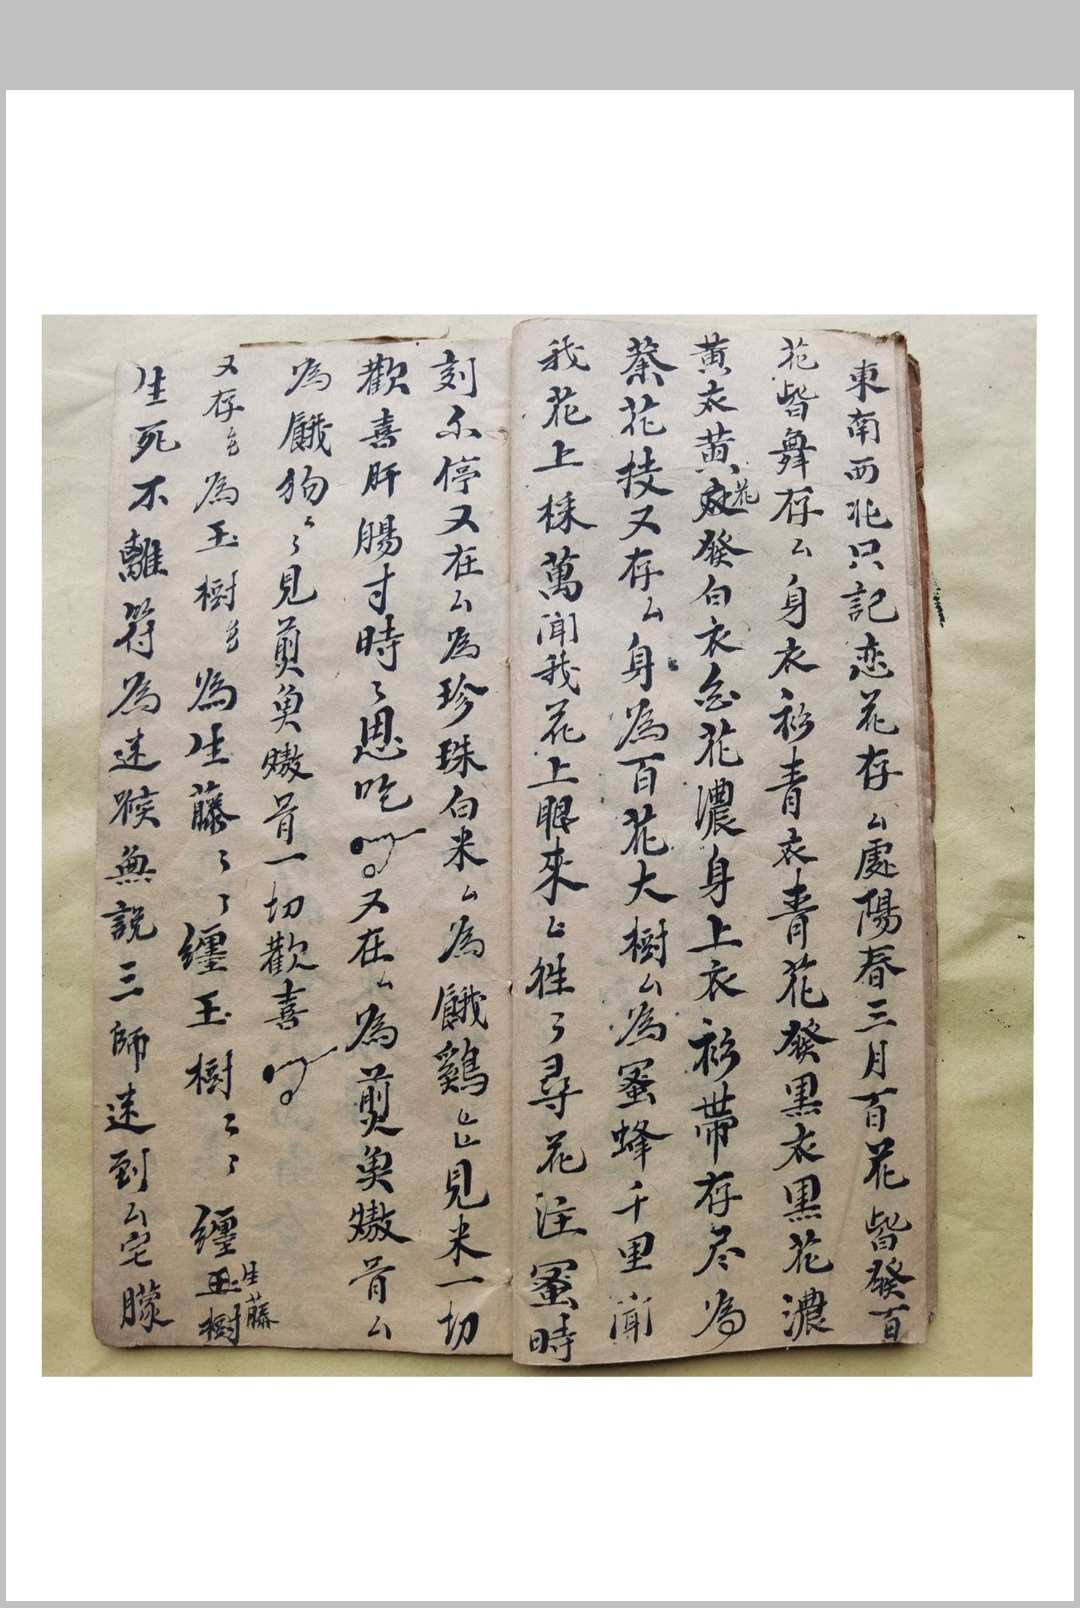 東南西北只記恋花存厶處陽春三月百花皆發百
花皆舞存厶身衣衫青衣青花發黒衣黒花濃
黄衣黄花發白衣白花濃身上衣衫带存尽為
蔡花技又存厶身為百花大樹厶為蜜蜂千里闻
我花上採萬闻我花上眼來〻徃〻尋花注蜜時
刻不停又在厶為珍珠白米厶為餓鷄〻見米一切
歡喜肝腸寸時〻思吃 又在厶為煎魚嫩骨厶
為餓狗〻〻見煎魚嫩骨一切歡喜
又存 為玉樹 為生藤〻〻纏玉樹〻〻纏玉樹
生藤
生死不離符為迷 無說三師迷到厶宅朦